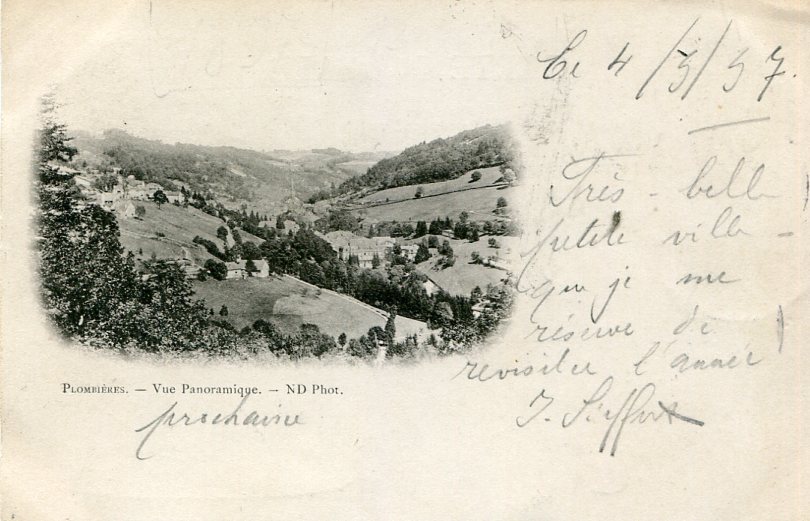 Ce 4/5/97.
Très-belle
petite ville-
que je me
réserve de
revisiter l'année
PLOMBIÈRES. — VUE PANORAMIQUE. — ND PHOT.
prochaine